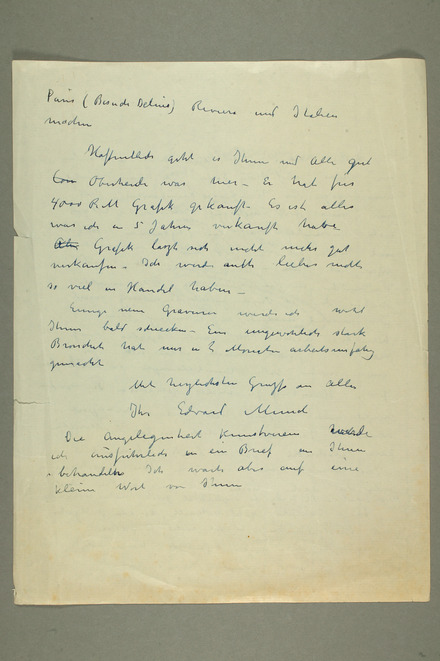 Paris (Besuch Delius) Riviera und Italien
machen
Hoffentlich geht es Ihnen und Alle gut
Oberheide war hier – Er hat für
4000 RM Grafik gekauft – Es ist alles
was ich in 5 Jahren verkauft habe
Grafik lasst sich nicht mehr gut
verkaufen – Ich werde auch lieber nicht
so viel in Handel haben –
Einige neue Gravuren werde ich wohl
Ihnen bald schicken – Eine ungewöhnlich stark
Bronchit hat mich in 2 Monaten arbeitsunfähig
gemacht
Mit herzlichsten Grüsse an alle
Ihr Edvard Munch
Die Angelegenheit Kunstverein werde
ich ausführlich in ein Brief an Ihnen
behandeln Ich warte aber auf eine
kleine Wort von Ihnen